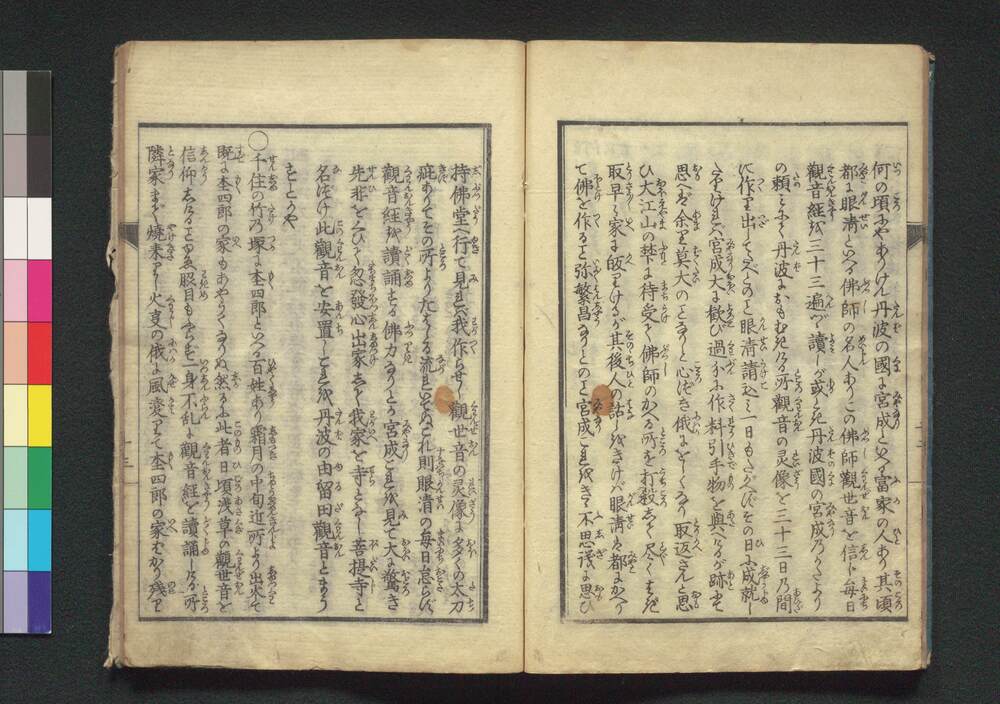 何の頃にやありけん丹波の國に宮成といふ富家の人あり其頃
都に眼清といへる佛師の名人ありこの佛師觀世音を信じ毎日
觀音經を三十三遍づゝ讀しが或とき丹波國の宮成のかたより
の頼にて丹波におもむきける所觀音の灵像を三十三日の間
に作り出してくれとのこと眼清請込三日もたゝぬにその日に成就し
ければ宮成大に歓び過分に作料引手物を與へけるが跡にて
思へば余り莫大のことなりと心つき俄にをしくなり取返さんと思
ひ大江山の梺に待受て佛師のかへる所を打殺して尽くうばひ
取早々家に皈りけるが其後人の話しをきけば眼清は都にかへり
て佛を作ること弥繁昌なりとのこと宮成これをきゝ不思議に思ひ
持佛堂へ行て見れば我作らせし觀世音の灵像に多くの太刀
疵ありてその所より血ながるる流れ出ていたりこれ則眼清の毎日怠らず
觀音経を讀誦せる佛力なりとか宮成これを見て大に驚き
先非をくひて忽發心出家して我家を寺となし菩提寺と
名づけ此觀音を安置しこれを丹波の由留田觀音とまうり
すとかや
〇千住の竹の塚に杢四郎といへる百姓あり霜月の中旬近所より出火して
既に杢四郎の家もあやうくなりぬ然るに此者日頃浅草の觀世音を
信仰しけることなれば此眼目もふらず一身不乱に觀音經を讀誦しける所
隣家まで焼来りし火急の俄に風変りて杢四郎の家ばかり残り